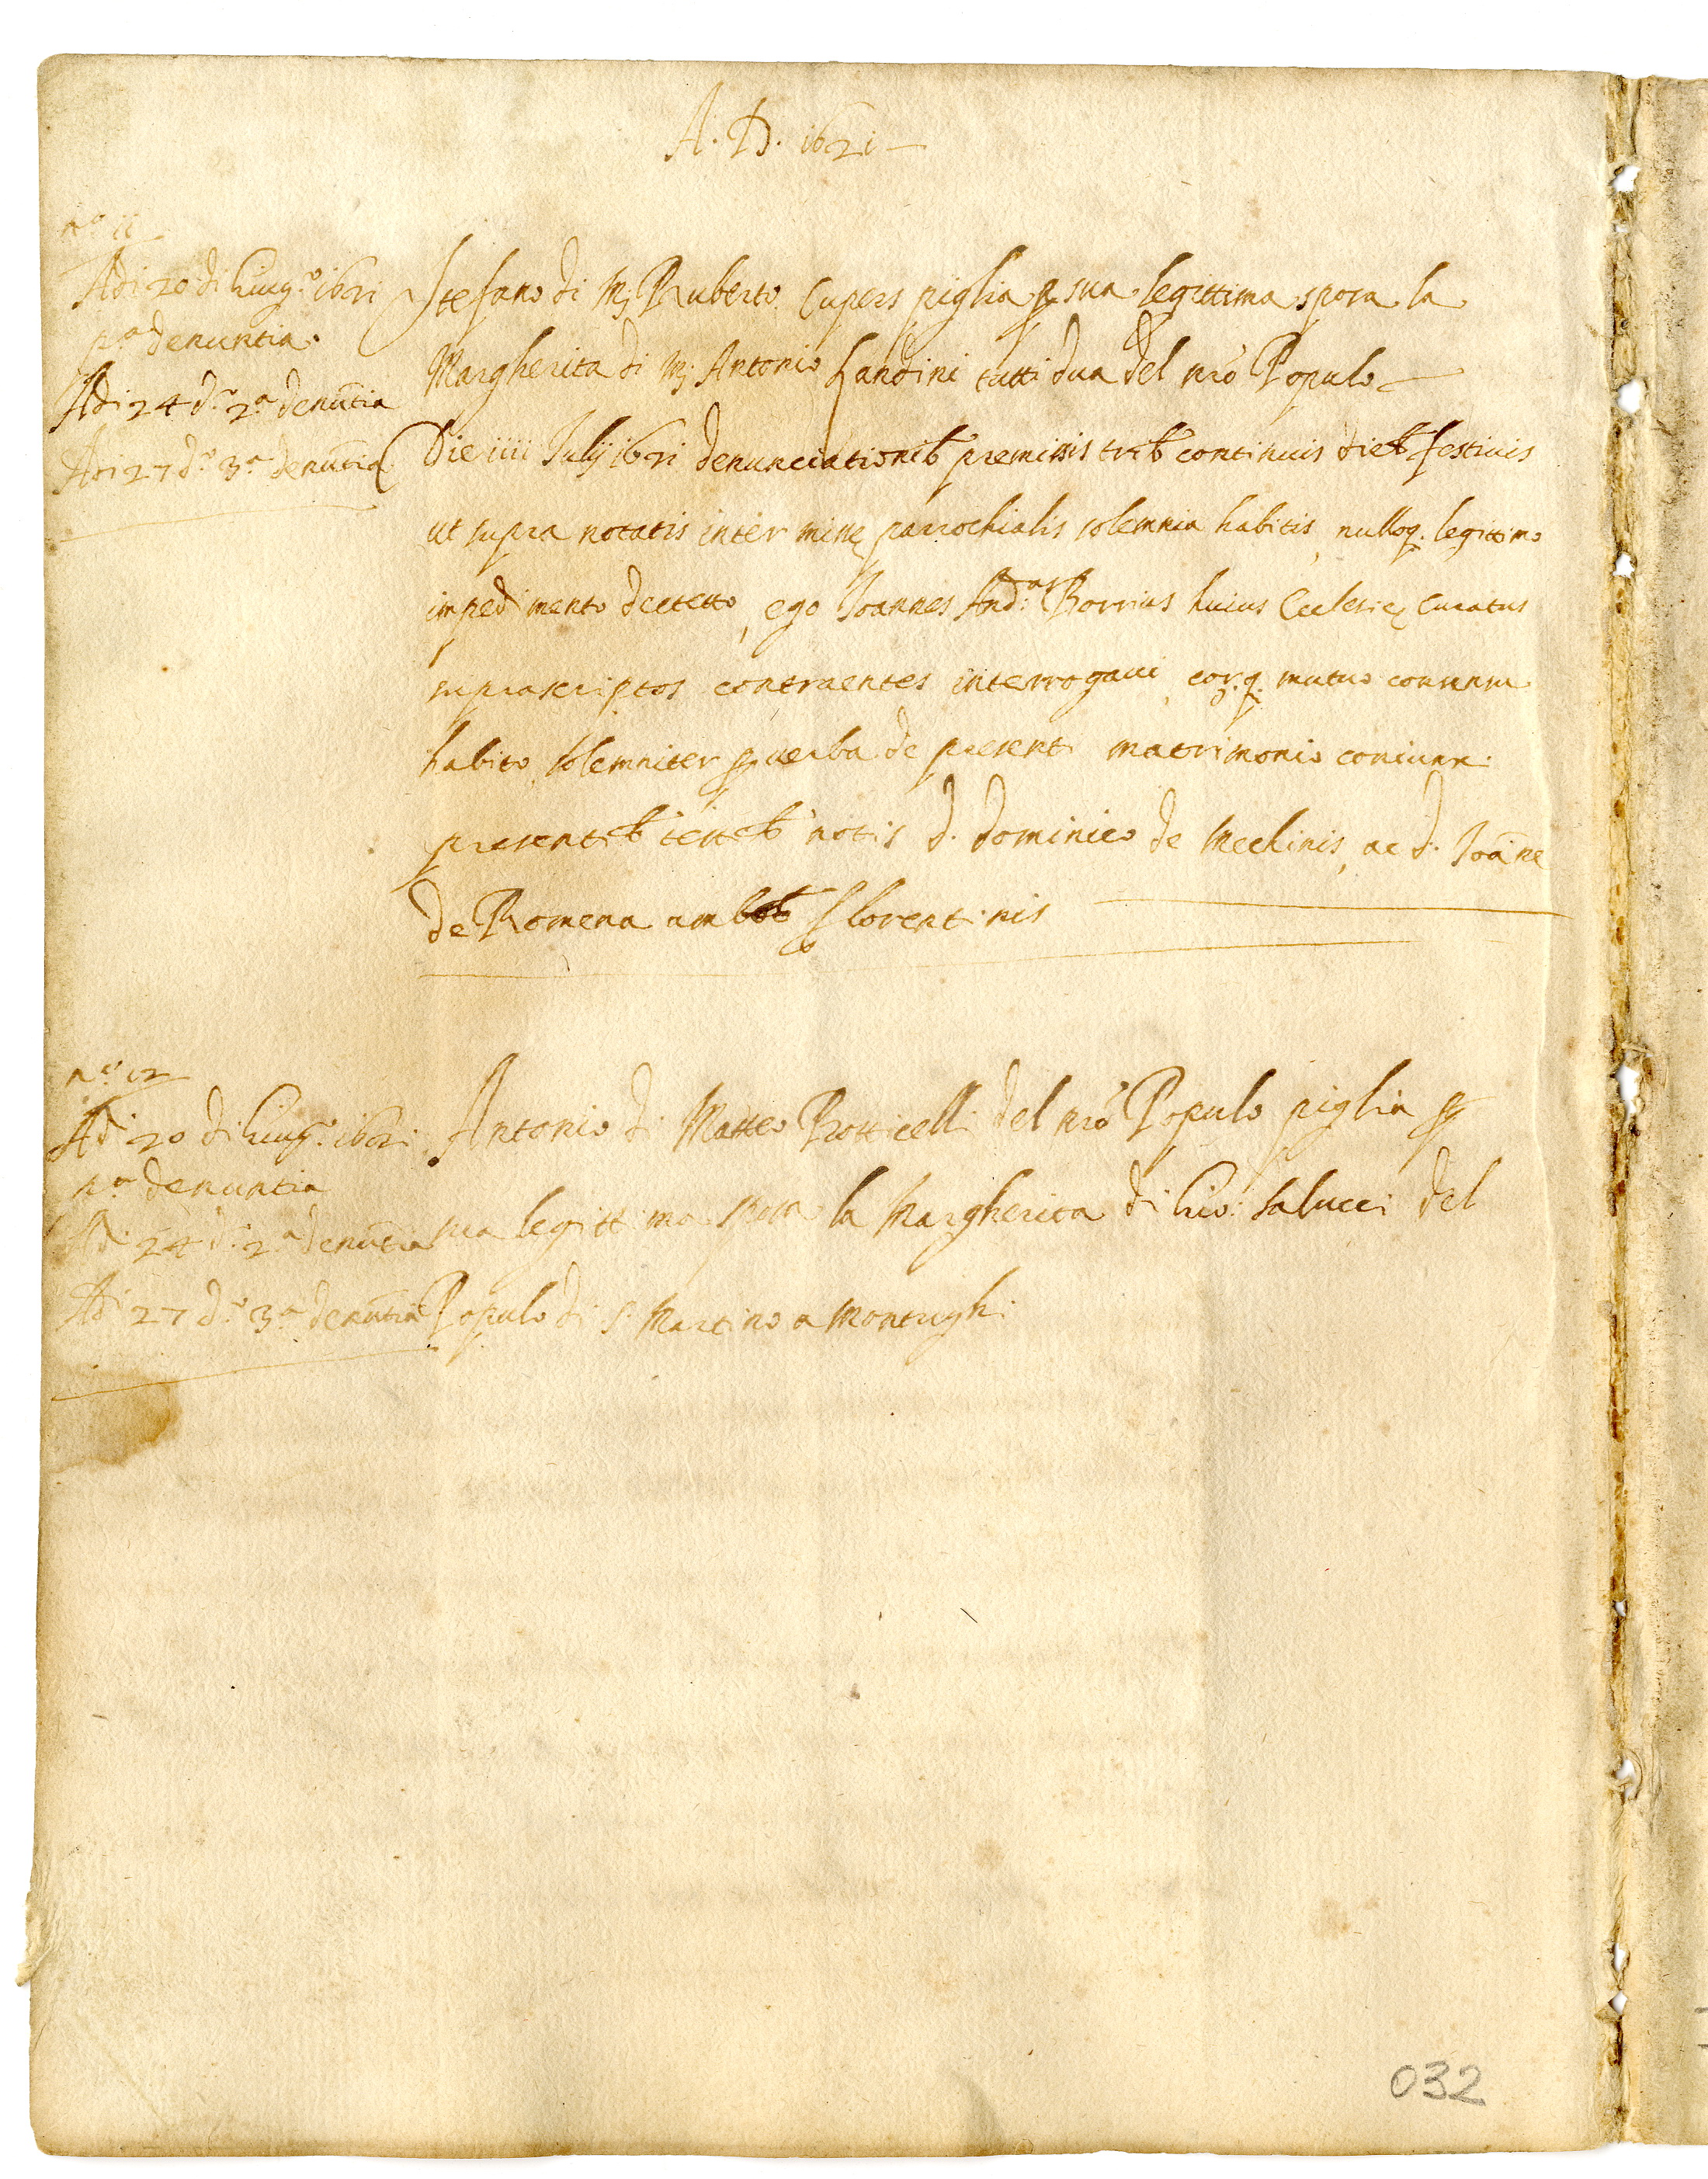 A. D. 1621
nº 11
Adi 20 di Giugº 1621
pª denuntia
Adi 24 dº 2ª denūtia
Adi 27 dº 3ª denūtia
Stefano di Mʒ Ruberto Cupers piglia ꝑ sua legittima sposa la
Margherita di Mʒ Antonio Landini tutti dua del nr̃o Populo
Die iiii Julij 1621 denunciationib premissis trib continuis dieb festivis
ut supra notatis inter missę parrochialis solemnia habitis, nulloq. legittimo
impedimento detetto, ego Joannes Andᵃˢ Borrius huius Ecclesię Curatus
suprascriptos contraentes interrogavi, eor.q. mutuo consensu
habito solemniter ꝑ verba de presenti matrimonio coniunxi
presentib testib notis d. Dominico de Mechinis, ac d. Joāne
de Romena amb Florentinis
nº 12
Adi 20 di Giugº 1621
pª denuntia
Adi 24 dº 2ª denūtia
Adi 27 dº 3ª denūtia
Antonio di Matteo Botticelli del nr̃o Populo piglia ꝑ
sua legittima sposa la Margherita di Gio: Salucci del
Populo di S. Martino a Montughi
032